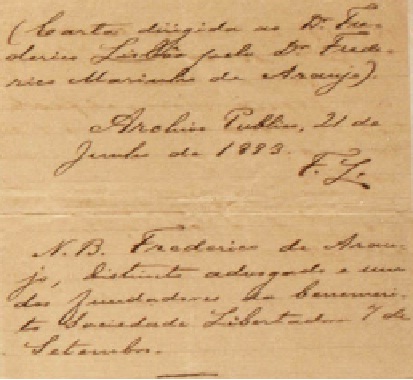 (Carta dirigida ao Dr. Fre-
derico Lisbôa pelo Dr. Frede-
rico Marinho de Araujo).
Archivo Publico, 21 de
Junho de 1893.
F. L.
N. B. Frederico de Arau-
jo, distincto advogado e um
dos fundadores da benemeri-
ta Sociedade Libertadora 7 de
Setembro.